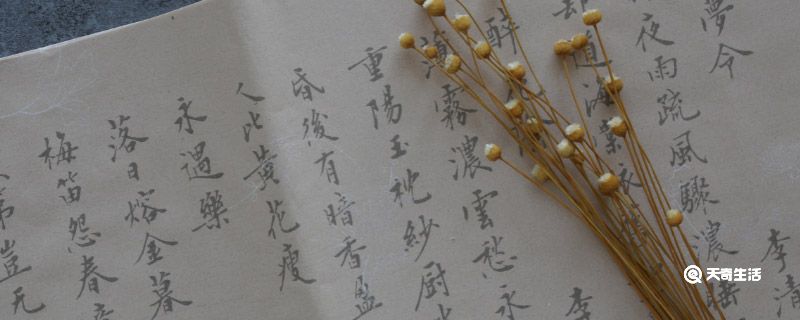 夢令
夜雨疏風驟濃睡
李清
却道海棠依
醉花陰
李
薄霧濃雲愁永
重陽玉枕紗厨
昏後有暗香盈
人比黃花瘦
永遇樂
落日熔金暮
梅笛怨春
豈无
天奇生活